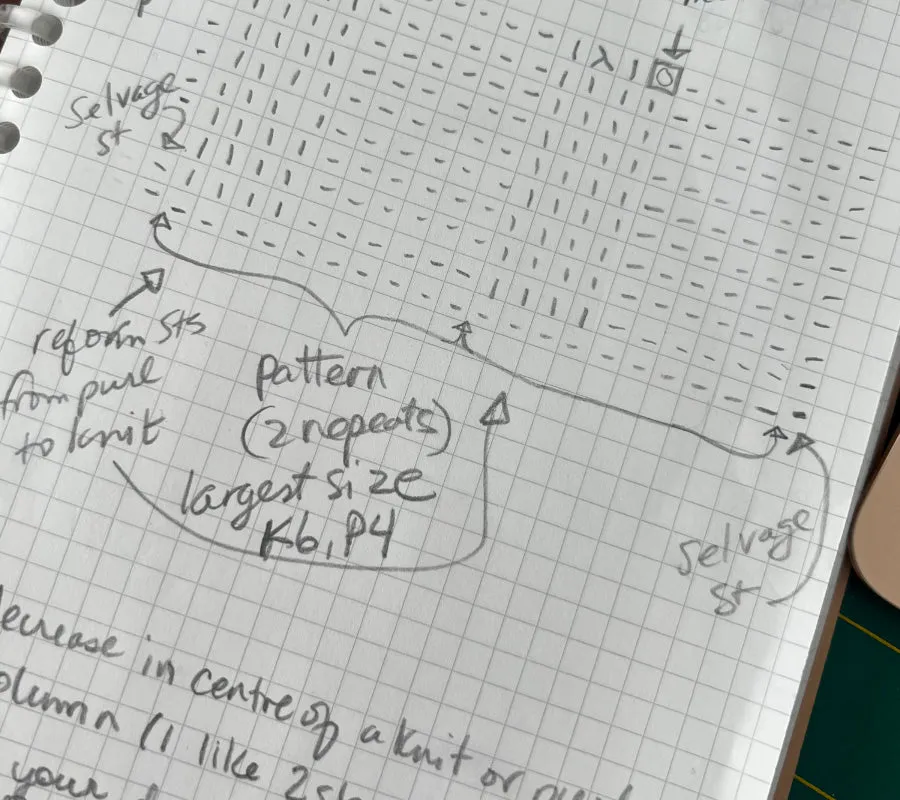 selvage
st
reform sts
from purl
to knit
pattern
(2 repeats)
largest size
K6, P4
selvage
st
decrease in centre of a knit or
column (I like
your